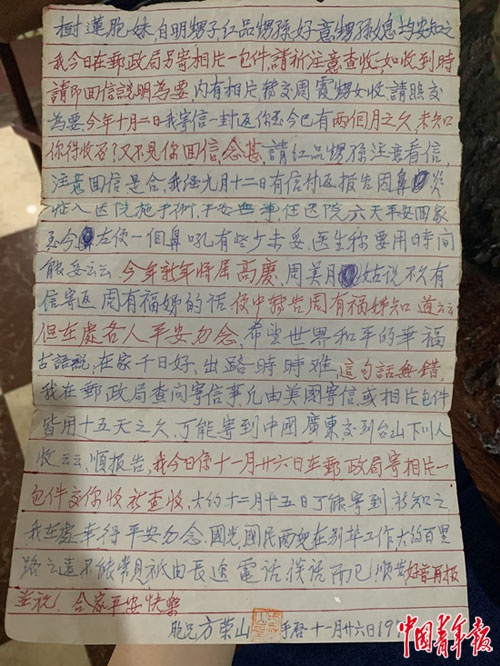 樹蓮胞妹自明甥子紅品甥孫好意甥孫媳均安知之
我今日在郵政局另寄相片一包件請祈注意查收如收到時
請即回信説明為要內有相片替交周寶甥女收請照交
為要今年十月二日我寄信一封返你至今已有兩個月之久未知
你件收否了又不見你回信念甚請紅品甥孫注意看信
注意回信是合我在九月十二日有信付返報告因鼻炎
症入医院施手術平安無事住医院六天平安回家
至今左便一個鼻吼有些少未妥医生称要用日時间
能妥云云今年新年将届高慶周美月姑说不久有
信寄返周有福姊的话便中報告周有福姊知道云云
但在處各人平安勿念希望世界和平的幸福
古話說在家千日好出路一時難這句話無錯
我在郵政局查问寄信事凡由美國寄信或相片包件
皆用十五天之久才能寄到中國廣東交到台山下川人
收云云順报告我今日係十一月廿六日在郵政局寄相片一
包件交你收祈查收大約十二月十五日可能寄到祈知之
我在處幸得平安勿念國光國民两兒在别埠工作大約百里
路之遠不能常見祇由長途電話談话而已順告好音再报
並祝合家平安快樂
胞兄方荣山手啓十一月廿六日19
中國青年报